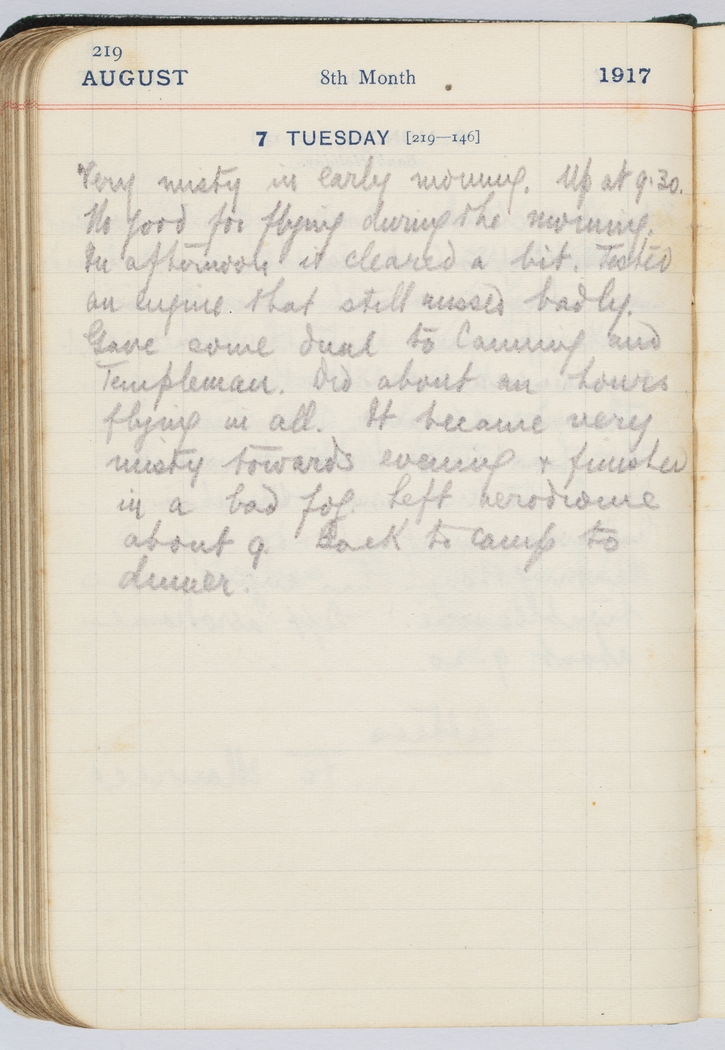 219
AUGUST 8th Month 1917
7 TUESDAY [219—146]
Very misty in early morning. Up at 9.30.
No good for flying during the morning.
In afternoon it cleared a bit. Tested
an engine that still missed badly.
Gave some dual to Canning and
Templeman. Did about an hours
flying in all. It became very
misty towards evening & finished
in a bad fog. Left aerodrome
about 9. Back to camp to
dinner.